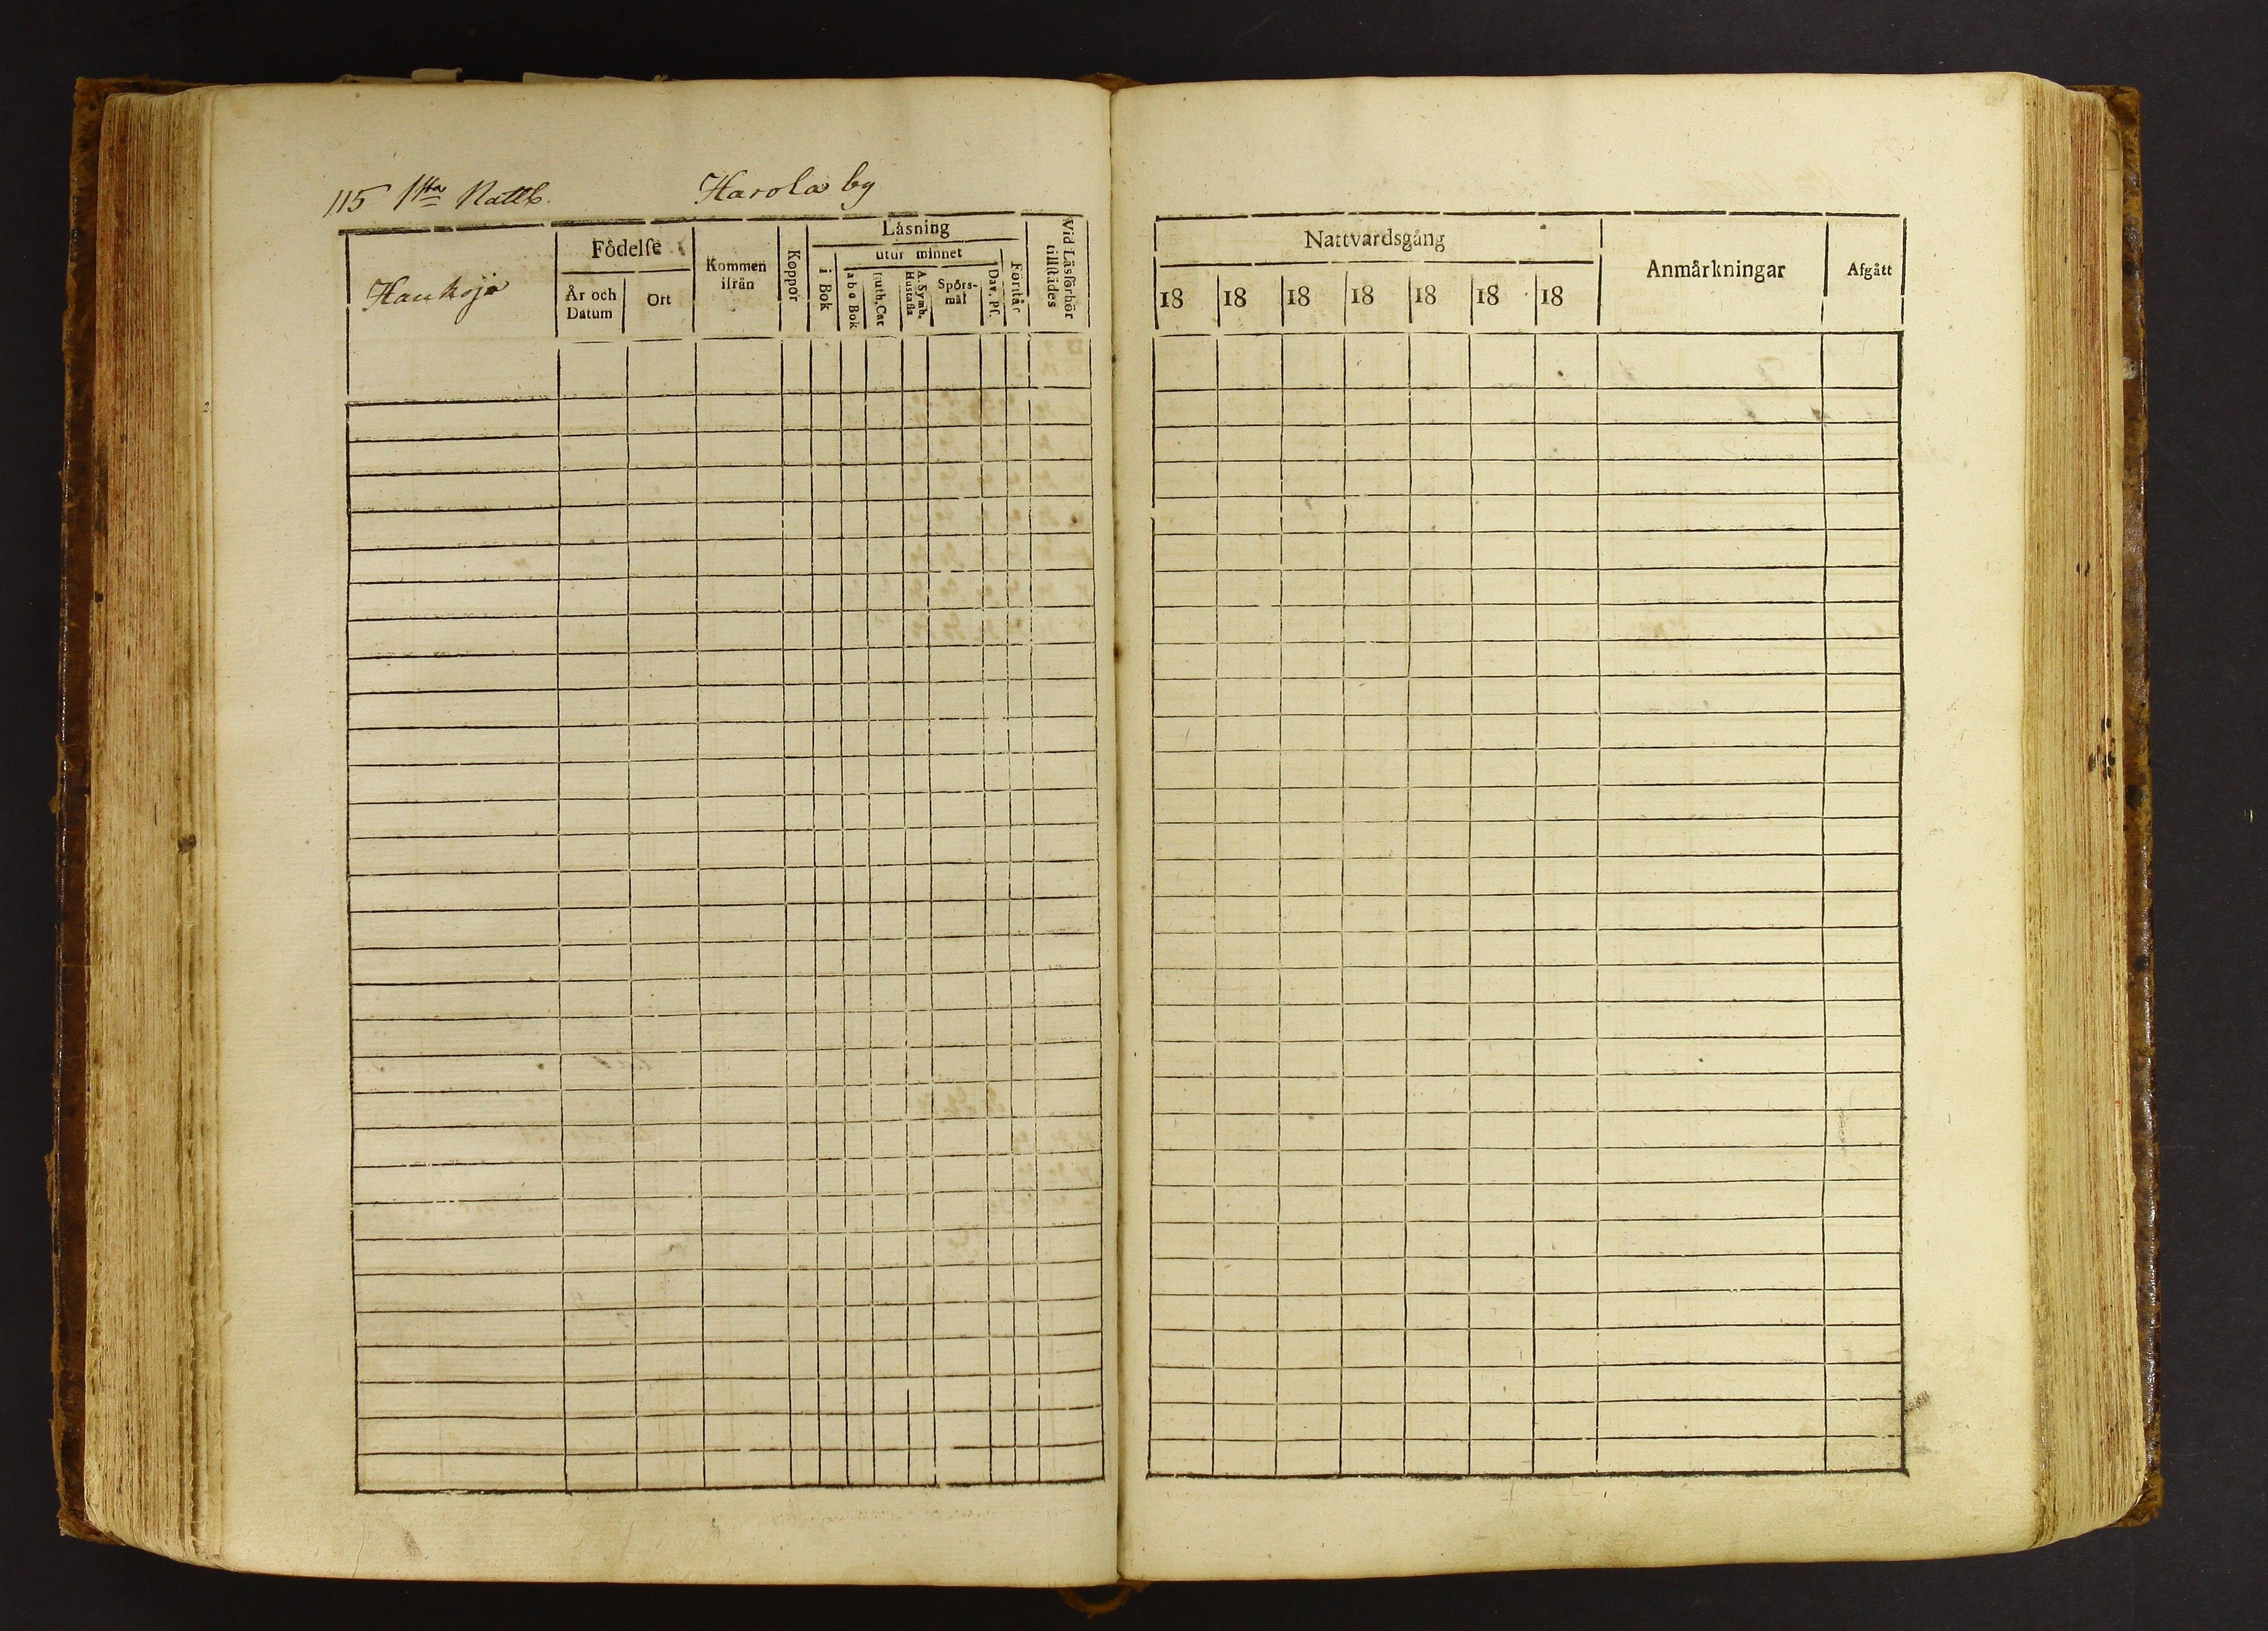 115 1sta Nattb. Harola by
Haukoja
Födelse
År och Datum
Ort
Kommen ifrån
Koppor
Läsning
i Bok
utur minnet
a b c Bok
Luth. Cat
A. Symb. Hustafla
Spörs-mål
Dav. Pſ.
Förstår
Vid Läsförhör tillstädes
Nattvardsgång
18 18 18 18 18 18 18
Anmärkningar
Afgått